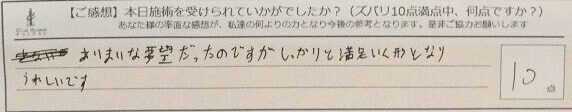 【ご感想】本日施術を受けられていかがでしたか？（ズバリ10点満点中、何点ですか？）
あなた様の率直な感想が、私達の何よりの力となり今後の参考となります。是非ご協力お願いします
あいまいな要望だったのですがしっかりと満足いく形となり
うれしいです
10点